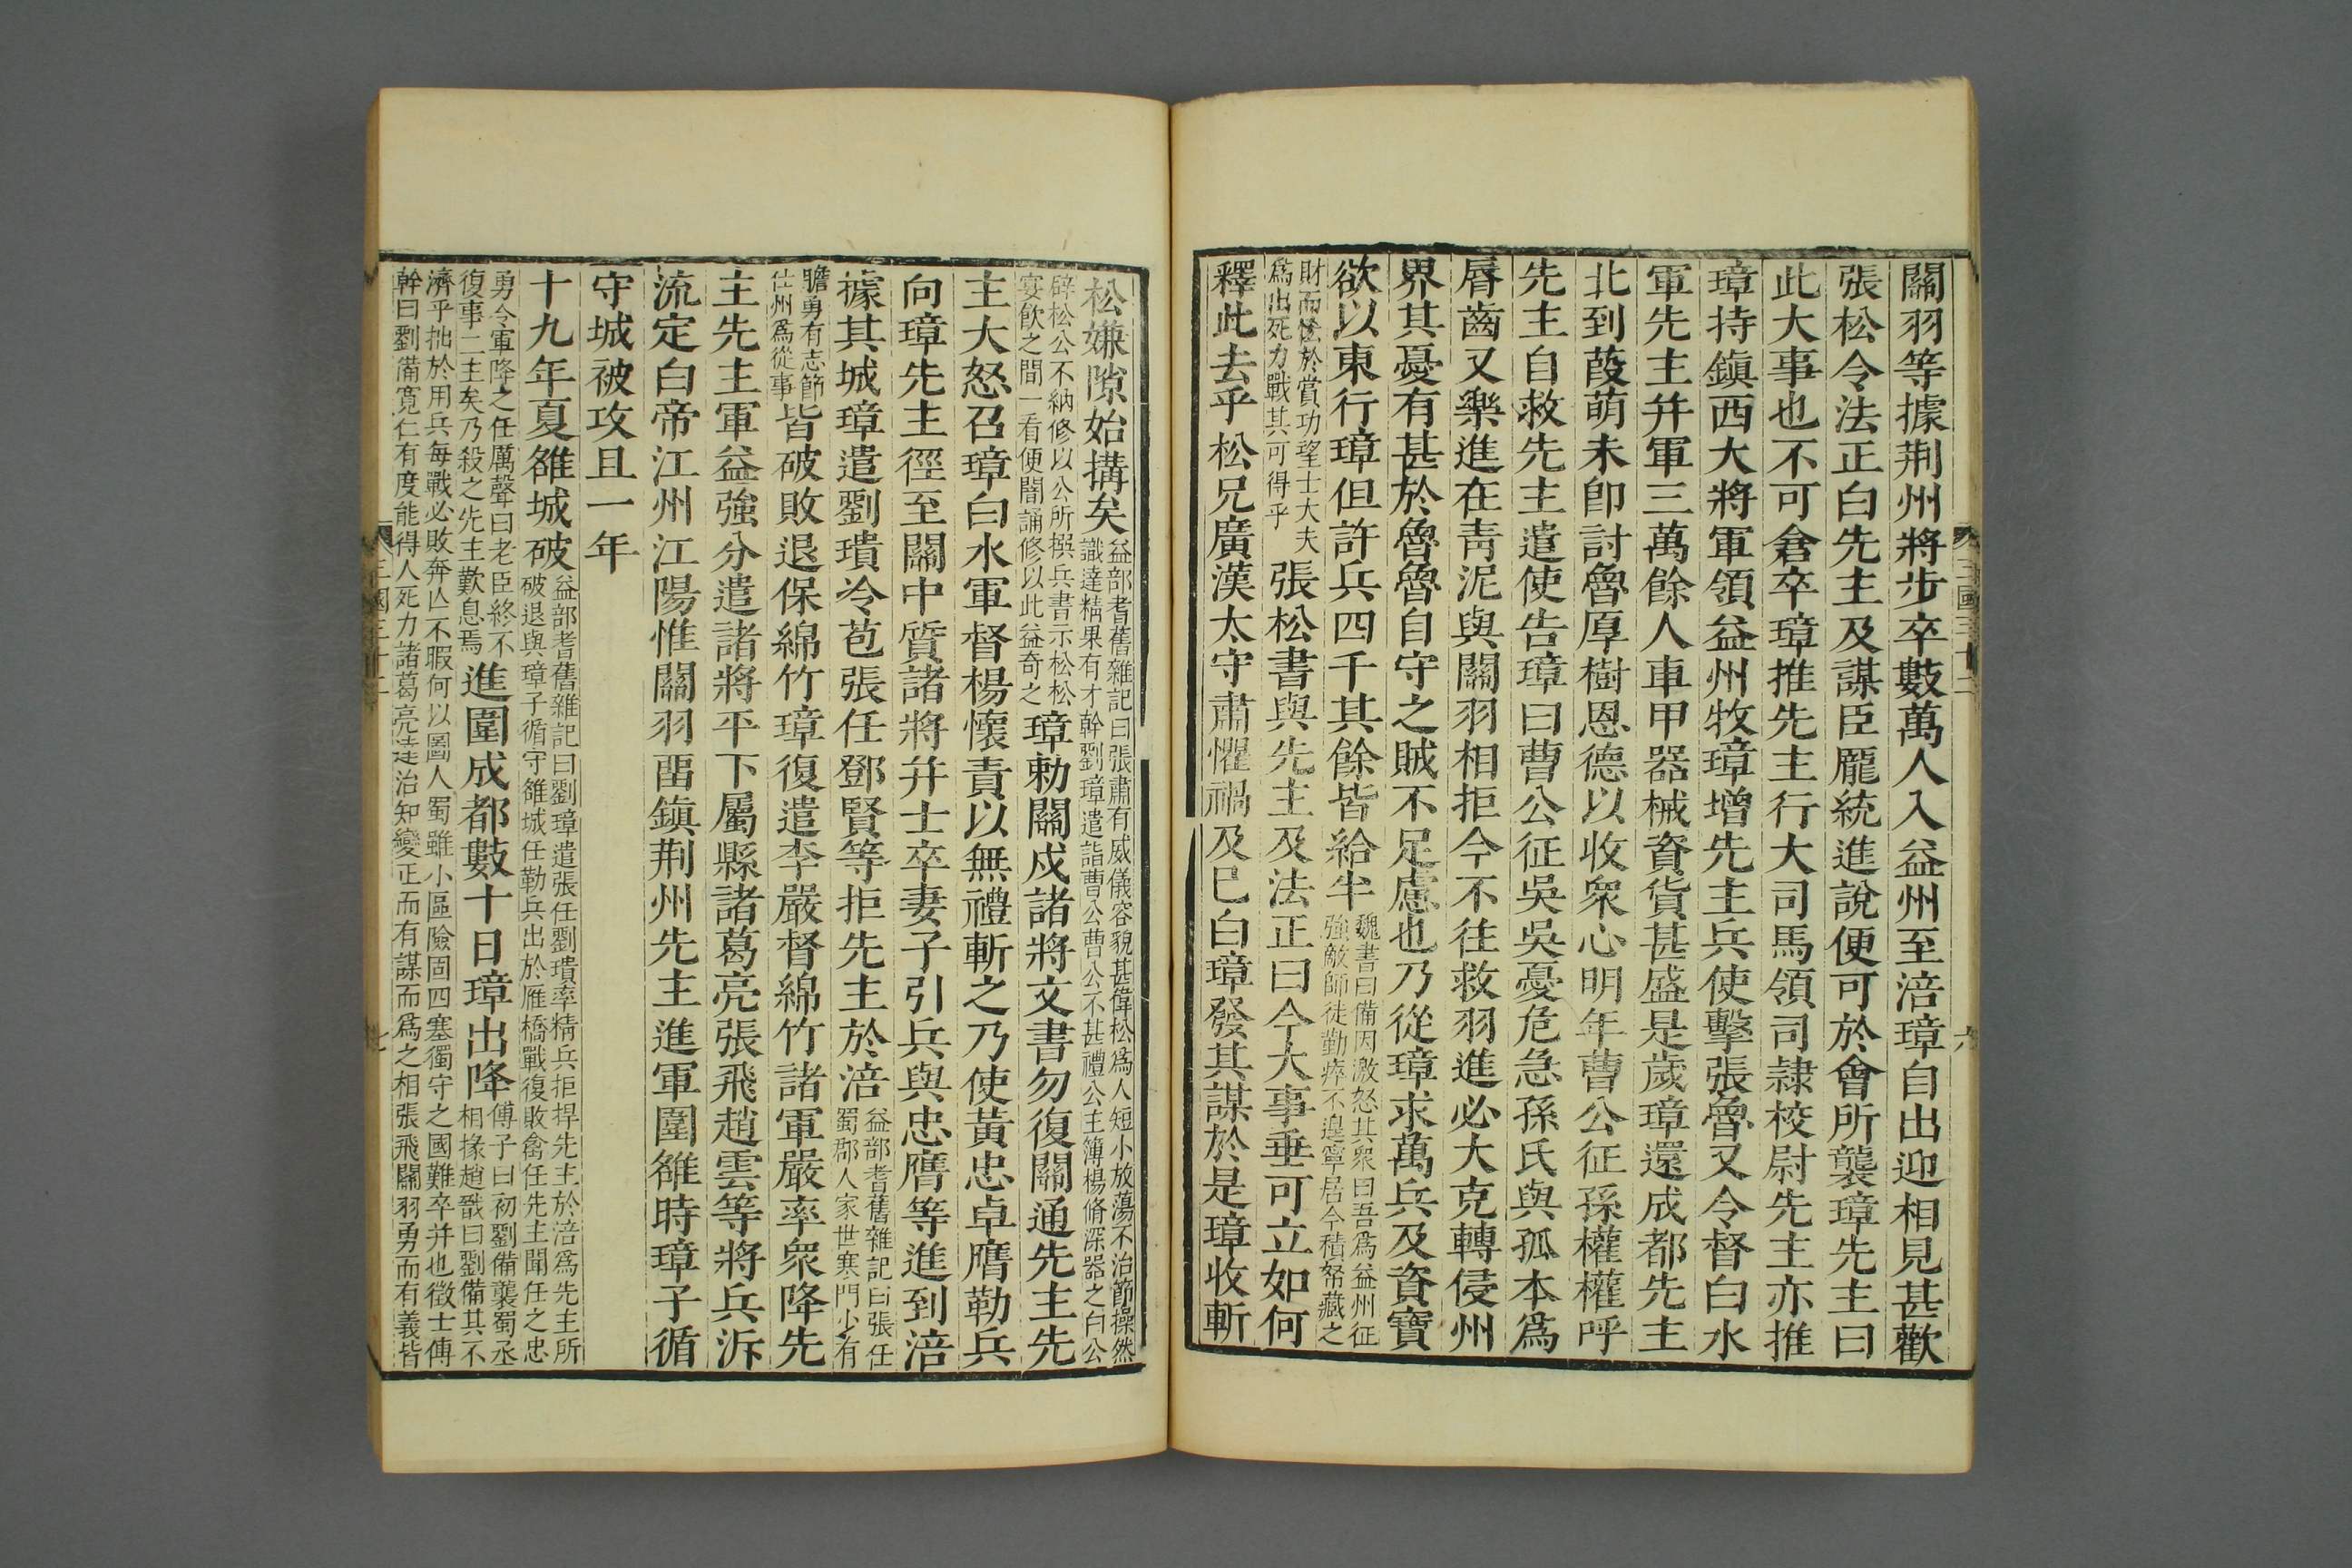 關羽等據荆州將步卒數萬人入益州至涪璋自出迎相見甚歡
張松令法正白先主及謀臣龐統進說便可於會所襲璋先主曰
此大事也不可倉卒璋推先主行大司馬領司隷校尉先主亦推
璋持鎭西大將軍領益州牧璋增先主兵使擊張魯又令督白水
軍先主并軍三萬餘人車甲器械資貨甚盛是歲璋還成都先主
北到葭萌未卽討魯厚樹恩德以收衆心明年曹公征孫權權呼
先主自救先主遣使告璋曰曹公征吳吳憂危急孫氏與孤本爲
脣齒又樂進在靑泥與關羽相拒今不往救羽進必大克轉侵州
界其憂有甚於魯魯自守之賊不足慮也乃從璋求萬兵及資寶
欲以東行璋但許兵四千其餘皆給半
魏書曰備因激怒其衆曰吾爲益州征
強敵師徒勤瘁不遑寧居今積帑藏之
財而恡於賞功望士大夫
爲出死力戰其可得乎
張松書與先主及法正曰今大事垂可立如何
釋此去乎松兄廣漢太守肅懼禍及已白璋發其謀於是璋收斬
三國三十二
六
松嫌隙始搆矣
益部耆舊雜記曰張肅有威儀容貌甚偉松爲人短小放蕩不治節操然
識達精果有才幹劉璋遣詣曹公曹公不甚禮公主簿楊脩深器之白公
辟松公不納修以公所撰兵書示松松
宴飮之間一看便闇誦修以此益奇之
璋勑關戍諸將文書勿復關通先主先
主大怒召璋白水軍督楊懷責以無禮斬之乃使黃忠卓膺勒兵
向璋先主徑至關中質諸將并士卒妻子引兵與忠膺等進到涪
據其城璋遣劉璝冷苞張任鄧賢等拒先主於涪
益部耆舊雜記曰張任
蜀郡人家世寒門少有
膽勇有志節
仕州爲從事
皆破敗退保綿竹璋復遣李嚴督綿竹諸軍嚴率衆降先
主先主軍益強分遣諸將平下屬縣諸葛亮張飛趙雲等將兵泝
流定白帝江州江陽惟關羽畱鎭荆州先主進軍圍雒時璋子循
守城被攻且一年
十九年夏雒城破
益部耆舊雜記曰劉璋遣張任劉璝率精兵拒捍先主於涪爲先主所
破退與璋子循守雒城任勒兵出於雁橋戰復敗禽任先主聞任之忠
勇令軍降之任厲聲曰老臣終不
復事二主矣乃殺之先主歎息焉
進圍成都數十日璋出降
傅子曰初劉備襲蜀丞
相掾趙戩曰劉備其不
濟乎拙於用兵每戰必敗奔亾不暇何以圖人蜀雖小區險固四塞獨守之國難卒并也徵士傅
幹曰劉備寛仁有度能得人死力諸葛亮達治知變正而有謀而爲之相張飛關羽勇而有義皆
三國三十二
七